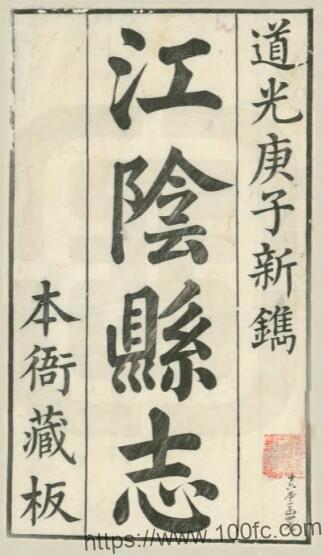 道光庚子新鐫
江陰縣志
本衙藏板
https://www.100fc.com